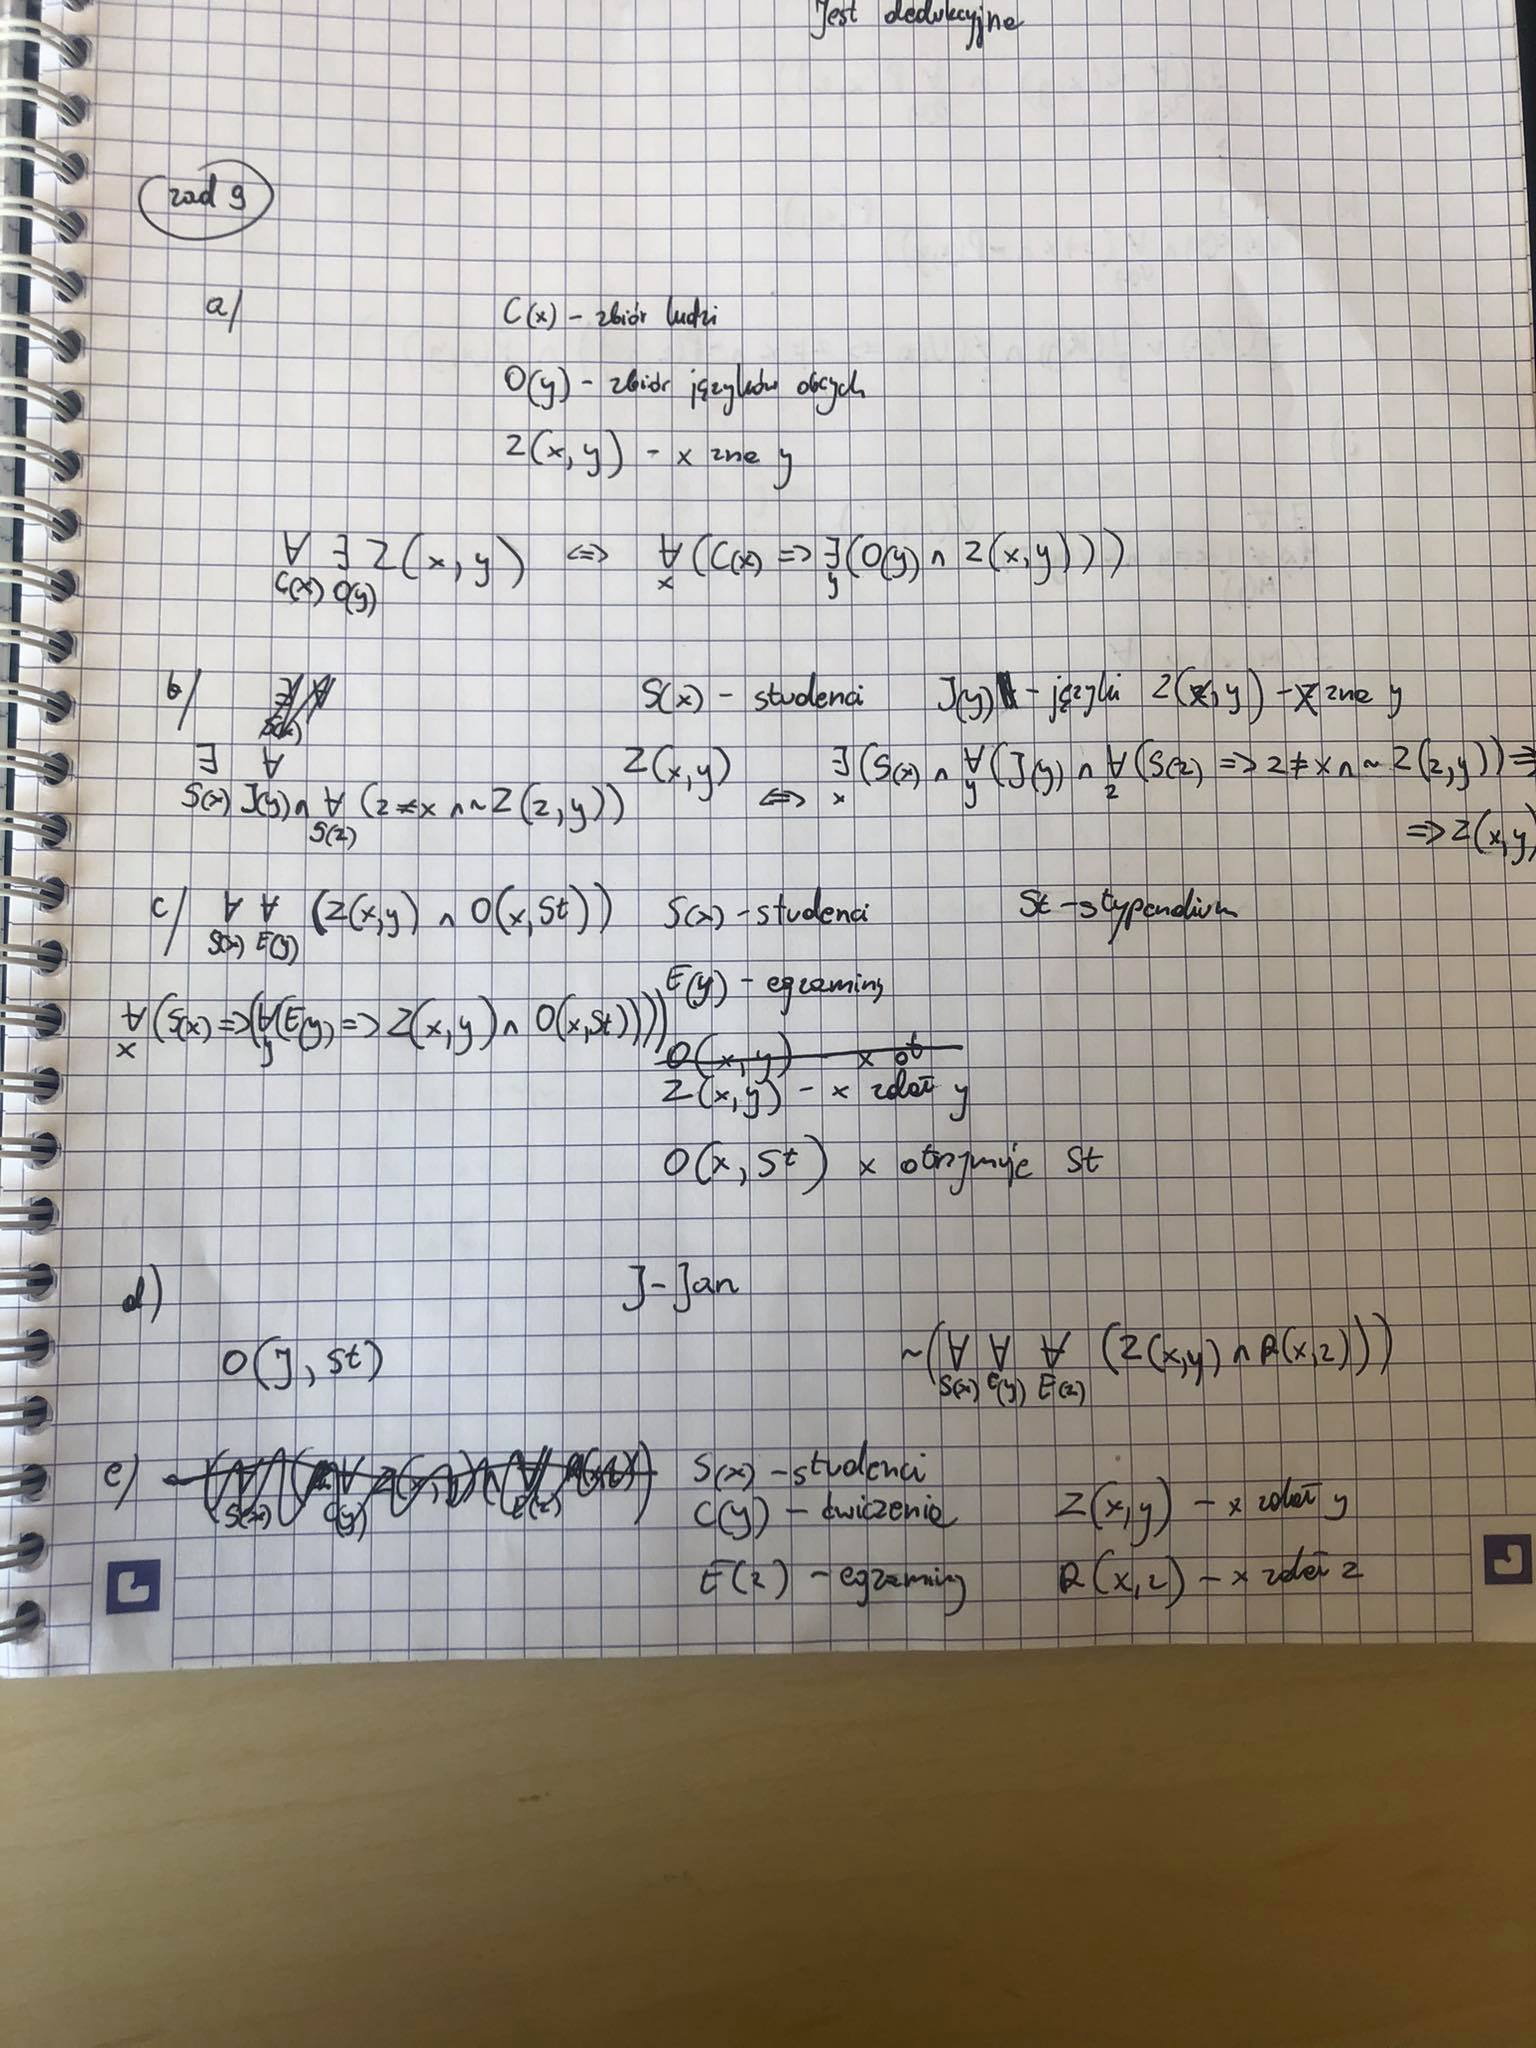 Jest dedukcyjne
zad 9
a/ C(x) - zbiór ludzi
O(y) - zbiór języków obcych
Z(x, y) - x zna y
∀ ∃ Z(x, y) <=> ∀ (C(x) => ∃ (O(y) ∧ Z(x, y)))
C(x) O(y) x y
b/ S(x) - studenci J(y) - języki Z(x, y) - x zna y
∃ ∀ Z(x, y) <=> ∃ (S(x) ∧ ∀ (J(y) ∧ ∀ (S(z) => z ≠ x ∧ ~ Z(z, y)) =>
S(x) J(y) ∧ ∀ (z ≠ x ∧ ~ Z(z, y)) x y z
S(z) => Z(x, y)
c/ ∀ ∀ (Z(x,y) ∧ O(x, St)) S(x) - studenci St - stypendium
S(x) E(y)
E(y) - egzaminy
∀ (S(x) => (∀ (E(y) => Z(x, y) ∧ O(x, St))))
x y
O(x, y) - x ot
Z(x, y) - x zdał y
O(x, St) x otrzymuje St
d) J - Jan
O(J, St) ~(∀ ∀ ∀ (Z(x,y) ∧ R(x,z)))
S(x) C(y) E(z)
e) S(x) - studenci
C(y) - ćwiczenia Z(x, y) - x zdał y
E(z) - egzaminy R(x, z) - x zdał z